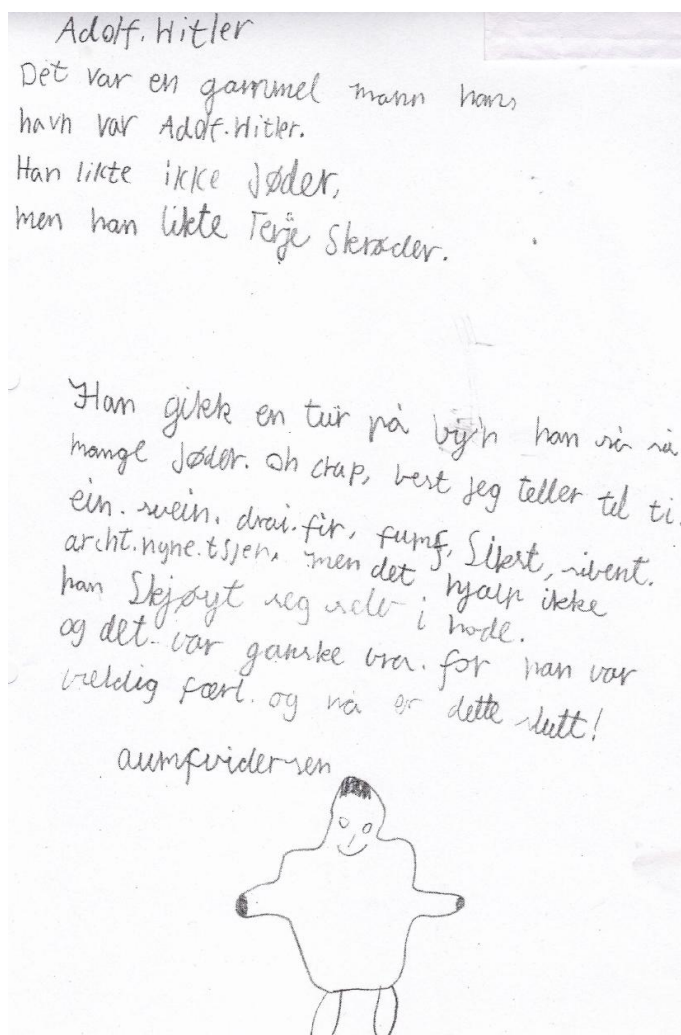 Adolf. Hitler
Det var en gammel mann hans
navn var Adolf. Hitler.
Han likte ikke Jøder,
men han likte Terje Skrøder.
Han gikk en tur på by'n han så så
mange Jøder. Oh crap, best jeg teller tel ti.
ein. svein. drai. fir, fumf, Sikst, sivent.
archt. nyne. tsjen, men det hjalp ikke
han Skjøyt seg selv i hode.
og det var ganske bra. for han var
veldig færl. og nå er dette slutt!
aumfvidersen